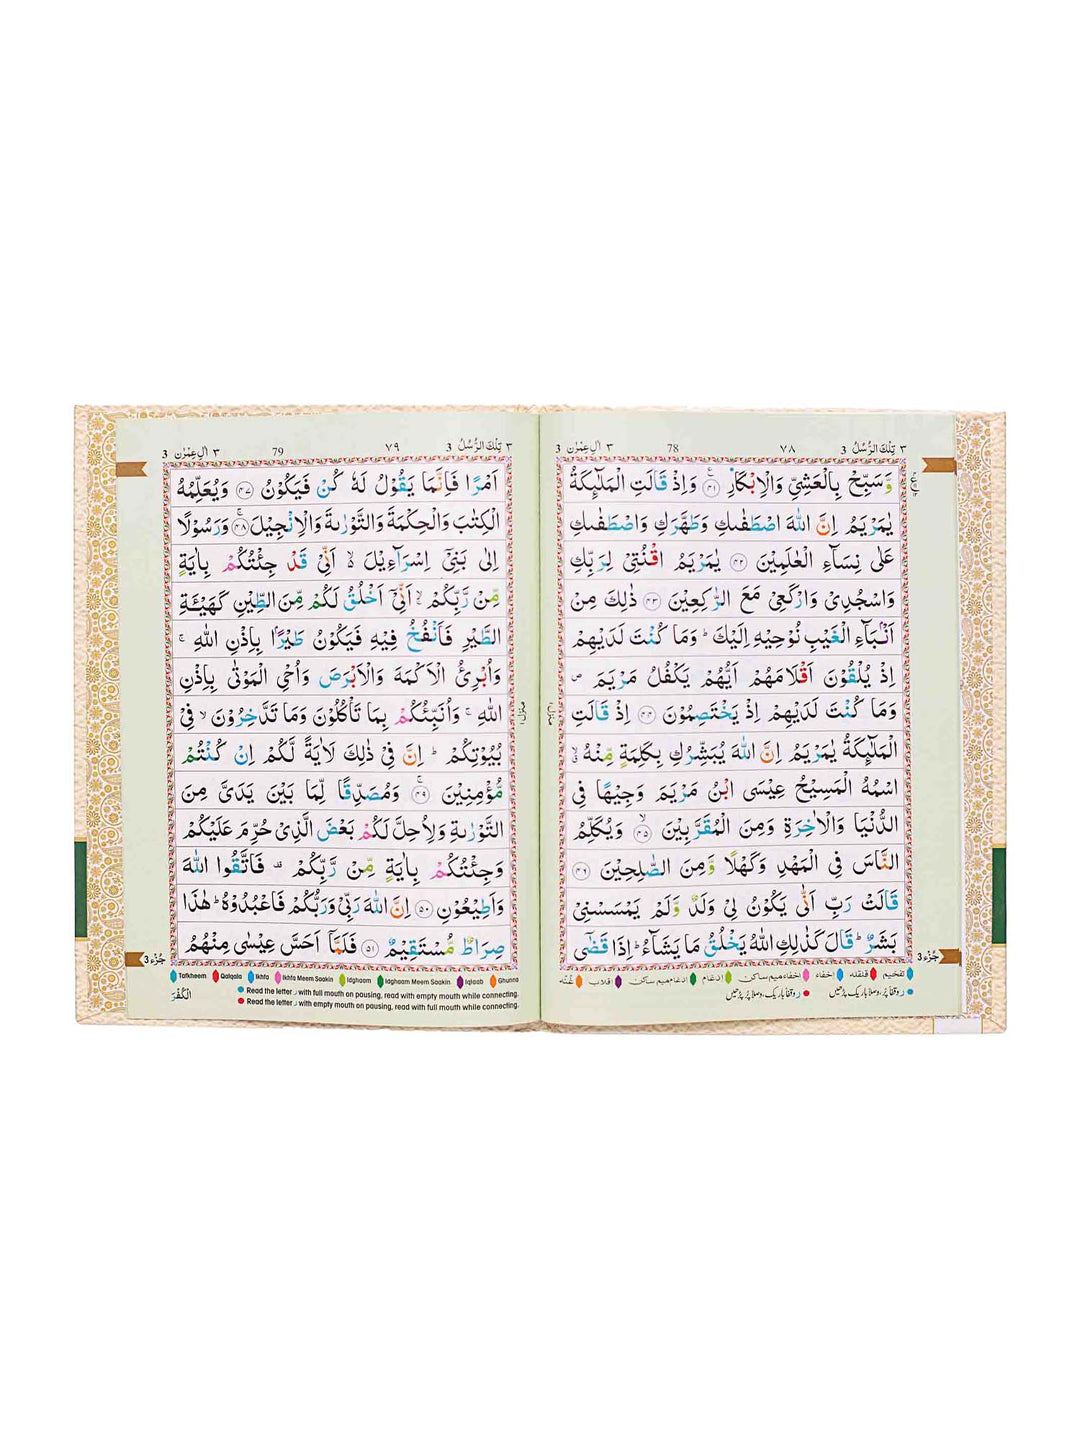 ٣ تِلْكَ الرُّسُلُ 3
٧٨
78
٣ اٰلِ عِمْرٰن 3
وَّسَبِّحْ بِالْعَشِيِّ وَالْاِبْكَارِ ﴿۴۱﴾ وَاِذْ قَالَتِ الْمَلٰٓئِكَةُ
يٰمَرْيَمُ اِنَّ اللّٰهَ اصْطَفٰىكِ وَطَهَّرَكِ وَاصْطَفٰىكِ
عَلٰى نِسَآءِ الْعٰلَمِيْنَ ﴿۴۲﴾ يٰمَرْيَمُ اقْنُتِيْ لِرَبِّكِ
وَاسْجُدِيْ وَارْكَعِيْ مَعَ الرّٰكِعِيْنَ ﴿۴۳﴾ ذٰلِكَ مِنْ
اَنْۢبَآءِ الْغَيْبِ نُوْحِيْهِ اِلَيْكَ ؕ وَمَا كُنْتَ لَدَيْهِمْ
اِذْ يُلْقُوْنَ اَقْلَامَهُمْ اَيُّهُمْ يَكْفُلُ مَرْيَمَ ۪
وَمَا كُنْتَ لَدَيْهِمْ اِذْ يَخْتَصِمُوْنَ ﴿۴۴﴾ اِذْ قَالَتِ
الْمَلٰٓئِكَةُ يٰمَرْيَمُ اِنَّ اللّٰهَ يُبَشِّرُكِ بِكَلِمَةٍ مِّنْهُ ۖۗ
اسْمُهُ الْمَسِيْحُ عِيْسَى ابْنُ مَرْيَمَ وَجِيْهًا فِي
الدُّنْيَا وَالْاٰخِرَةِ وَمِنَ الْمُقَرَّبِيْنَ ﴿۴۵﴾ وَيُكَلِّمُ
النَّاسَ فِي الْمَهْدِ وَكَهْلًا وَّمِنَ الصّٰلِحِيْنَ ﴿۴۶﴾
قَالَتْ رَبِّ اَنّٰى يَكُوْنُ لِيْ وَلَدٌ وَّلَمْ يَمْسَسْنِيْ
بَشَرٌ ؕ قَالَ كَذٰلِكِ اللّٰهُ يَخْلُقُ مَا يَشَآءُ ؕ اِذَا قَضٰٓى
جُزْء 3
تفخیم قلقله إخفاء إخفاء ميم ساكن إدغام إدغام ميم ساكن إقلاب غُنّه
٣ تِلْكَ الرُّسُلُ 3
٧٩
79
٣ اٰلِ عِمْرٰن 3
اَمْرًا فَاِنَّمَا يَقُوْلُ لَهٗ كُنْ فَيَكُوْنُ ﴿۴۷﴾ وَيُعَلِّمُهُ
الْكِتٰبَ وَالْحِكْمَةَ وَالتَّوْرٰىةَ وَالْاِنْجِيْلَ ﴿۴۸﴾ وَرَسُوْلًا
اِلٰى بَنِيْٓ اِسْرَآءِيْلَ ۙ اَنِّيْ قَدْ جِئْتُكُمْ بِاٰيَةٍ
مِّنْ رَّبِّكُمْ ۙ اَنِّيْٓ اَخْلُقُ لَكُمْ مِّنَ الطِّيْنِ كَهَيْـَٔةِ
الطَّيْرِ فَاَنْفُخُ فِيْهِ فَيَكُوْنُ طَيْرًۢا بِاِذْنِ اللّٰهِ ۚ
وَاُبْرِئُ الْاَكْمَهَ وَالْاَبْرَصَ وَاُحْيِ الْمَوْتٰى بِاِذْنِ
اللّٰهِ ۚ وَاُنَبِّئُكُمْ بِمَا تَاْكُلُوْنَ وَمَا تَدَّخِرُوْنَ ۙ فِيْ
بُيُوْتِكُمْ ؕ اِنَّ فِيْ ذٰلِكَ لَاٰيَةً لَّكُمْ اِنْ كُنْتُمْ
مُّؤْمِنِيْنَ ﴿۴۹﴾ وَمُصَدِّقًا لِّمَا بَيْنَ يَدَيَّ مِنَ
التَّوْرٰىةِ وَلِاُحِلَّ لَكُمْ بَعْضَ الَّذِيْ حُرِّمَ عَلَيْكُمْ
وَجِئْتُكُمْ بِاٰيَةٍ مِّنْ رَّبِّكُمْ ۫ فَاتَّقُوا اللّٰهَ
وَاَطِيْعُوْنِ ﴿۵۰﴾ اِنَّ اللّٰهَ رَبِّيْ وَرَبُّكُمْ فَاعْبُدُوْهُ ؕ هٰذَا
صِرَاطٌ مُّسْتَقِيْمٌ ﴿۵۱﴾ فَلَمَّآ اَحَسَّ عِيْسٰى مِنْهُمُ
جُزْء 3
Tafkheem Qalqala Ikhfa Ikhfa Meem Saakin Idghaam Idghaam Meem Saakin Iqlaab Ghunna
Read the letter ر with full mouth on pausing, read with empty mouth while connecting.
Read the letter ر with empty mouth on pausing, read with full mouth while connecting.
الْكُفْرَ